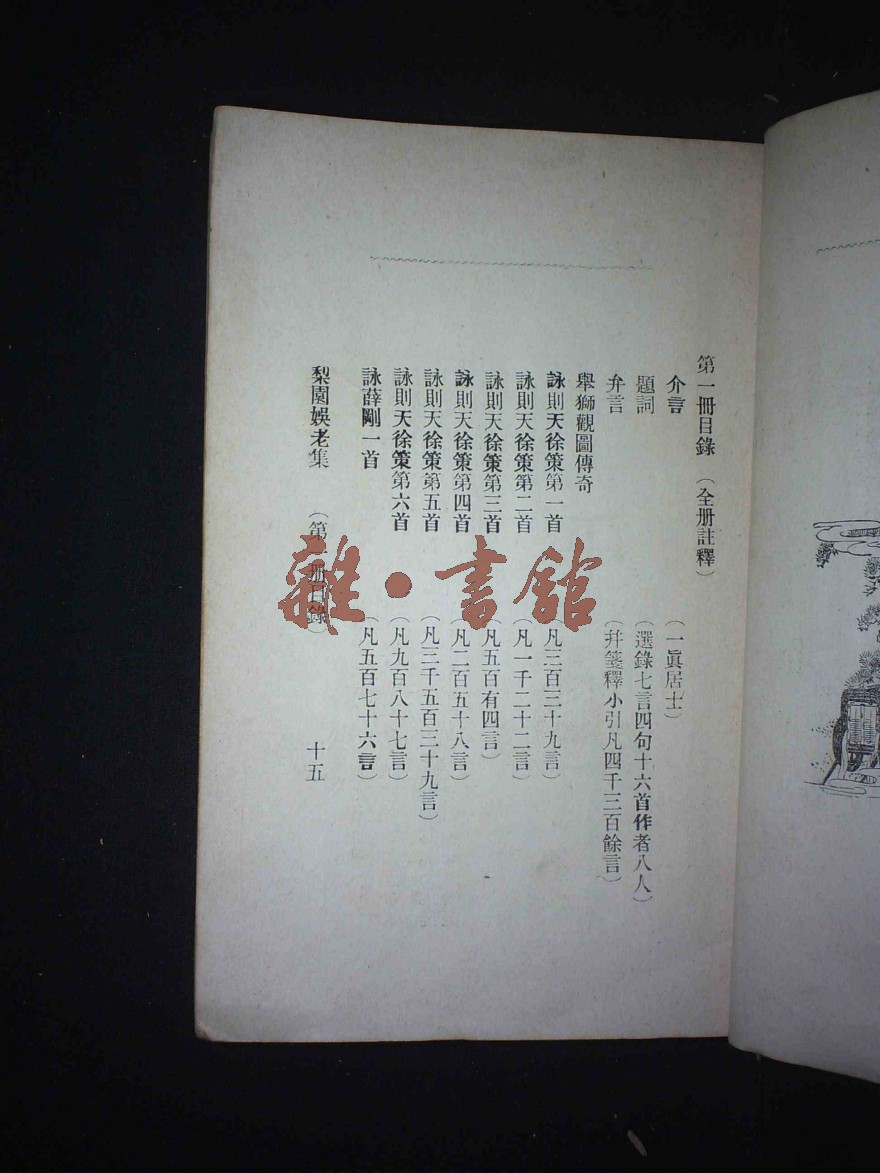 第一冊目錄 （全册註釋）
介言 （一眞居士）
題詞 （選錄七言四句十六首作者八人）
弁言 （幷箋釋小引凡四千三百餘言）
舉獅觀圖傳奇
詠則天徐策第一首 （凡三百三十九言）
詠則天徐策第二首 （凡一千二十二言）
詠則天徐策第三首 （凡五百有四言）
詠則天徐策第四首 （凡二百五十八言）
詠則天徐策第五首 （凡三千五百三十九言）
詠則天徐策第六首 （凡九百八十七言）
詠薛剛一首 （凡五百七十六言）
梨園娛老集 （第一册目錄） 十五
雜·書館